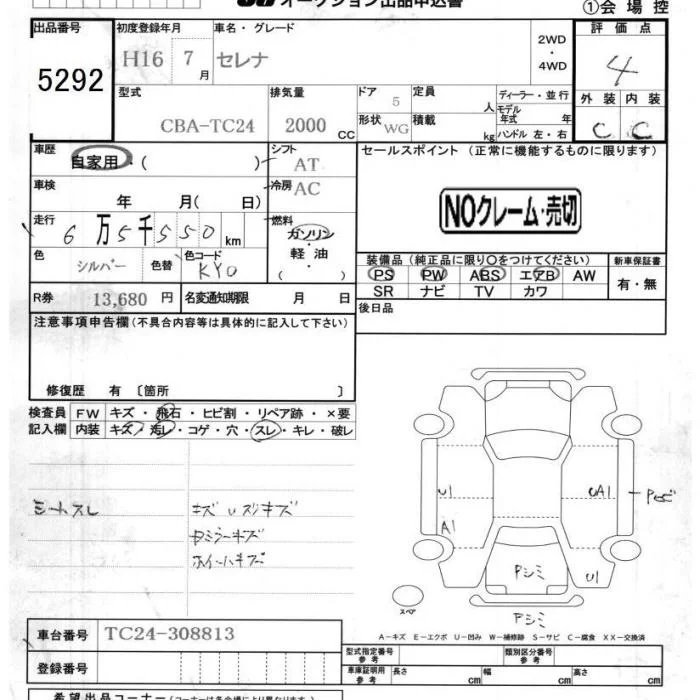 オークション出品申込書
①会場控
出品番号 初度登録年月 車名・グレード 2WD・4WD 評価点
5292 H16 7月 セレナ 4
型式 排気量 ドア 定員 ディーラー・並行 外装 内装
CBA-TC24 2000 CC 5 人 モデル年式 年 C C
形状 WG 積載 kg ハンドル 左・右
車歴 自家用・( ) シフト AT セールスポイント(正常に機能するものに限ります)
車検 年 月( 日) 冷房 AC NOクレーム・売切
走行 6万5千550km 燃料 ガソリン・軽油・( )
色 シルバー 色替 色コード KY0 装備品(純正品に限り○をつけてください) 新車保証書
PS PW ABS エアB AW 有・無
SR ナビ TV カワ
R券 13,680円 名変通知期限 月 日 後日品
注意事項申告欄(不具合内容等は具体的に記入して下さい)
修復歴 有 〔箇所 〕
検査員 FW キズ・飛石・ヒビ割・リペア跡・×要
記入欄 内装 キズ・汚レ・コゲ・穴・スレ・キレ・破レ
シートスレ キズ Uスリキズ
ミラーキズ
ホイールキズ
U1
UA1
A1
Pシミ
U1
スペア
Pシミ
A-キズ E-エクボ U-凹み W-補修跡 S-サビ C-腐食 XX-交換済
車台番号 TC24-308813
型式指定番号 参考 類別区分番号 参考
登録番号 車庫証明用 参考 長さ cm 幅 cm 高さ cm
希望出品コーナー